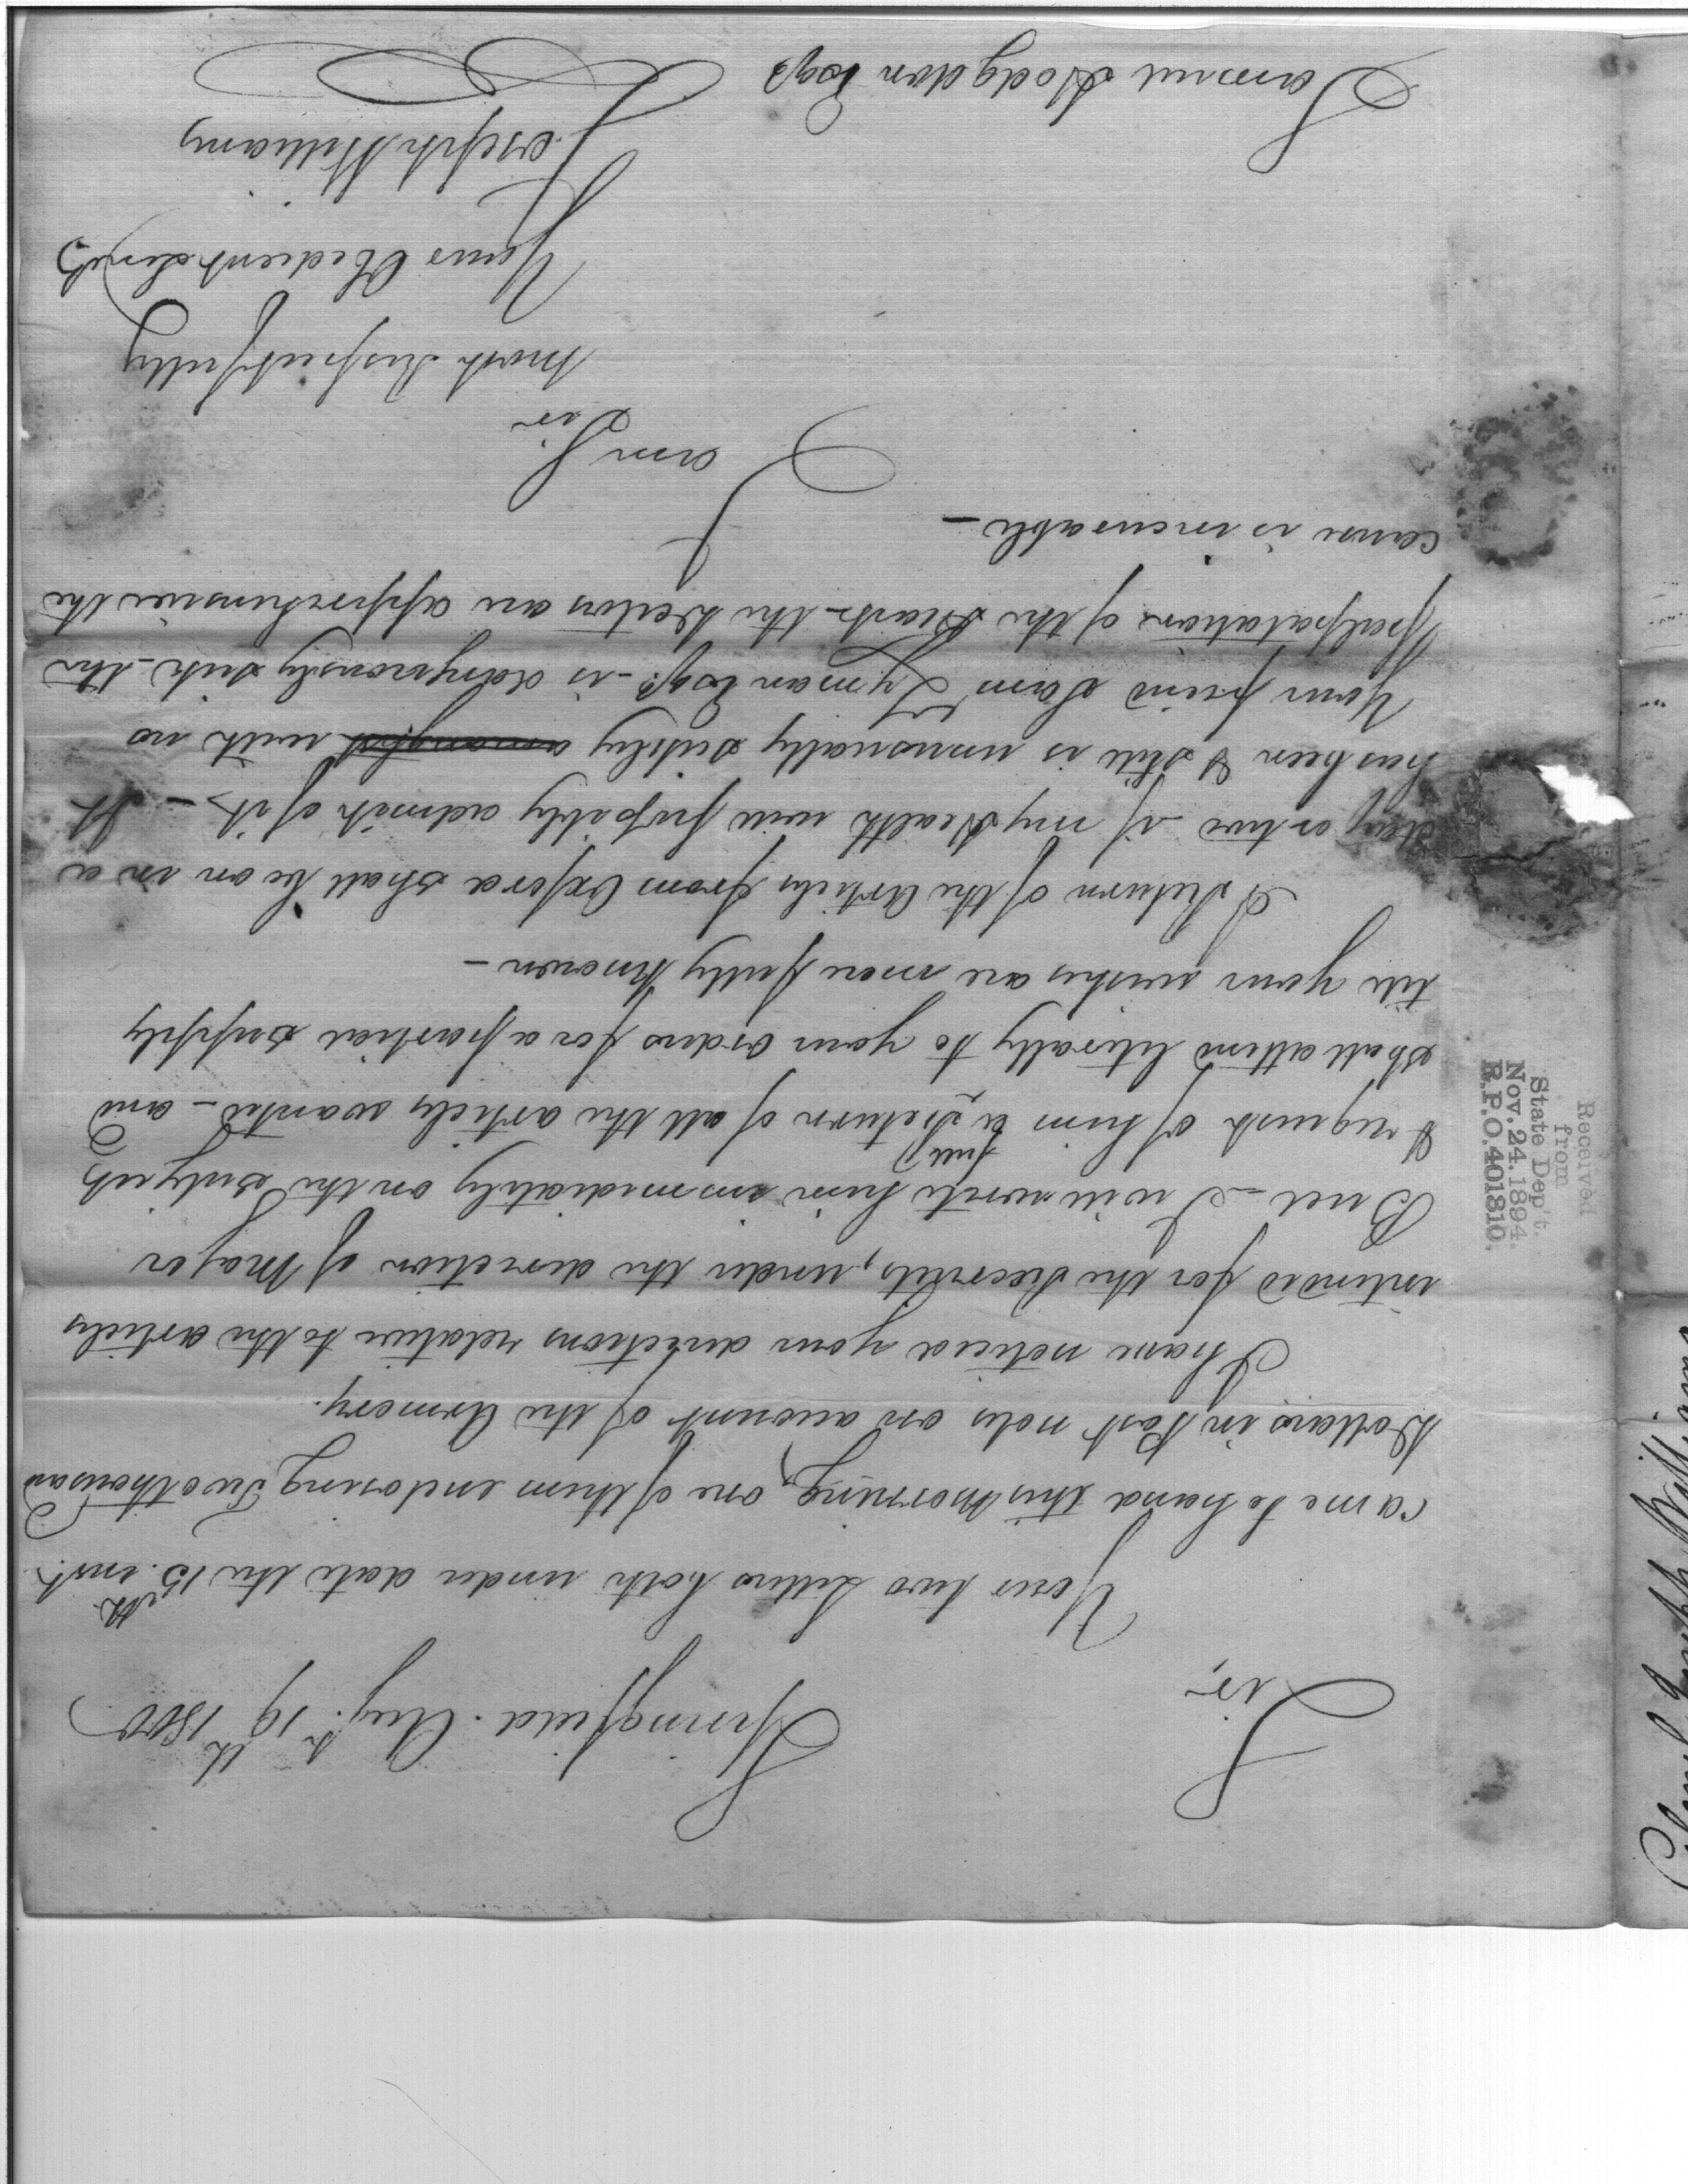 Springfield. Aug.t 19th 1800
Sir,
Your two Letters both under date the 15th. inst.
came to hand this Morning, one of them enclosing Two thousand
Dollars in Post notes on account of the Armory.
I have noticed your directions relative to the articles
intended for the Recruits, under the direction of Major
Buel – I will write him immediately on the subject
& request of him a full Return of all the articles wanted – and
shall attend literally to your orders for a partial supply
till your wishes are more fully known –
A Return of the Articles from Oxford shall be on in a
day or two – if my Health will possibly admit of it – It
has been & still is unusually sickly amongst with us
Your friend Sam Lyman Esqr. – is dangerously sick – the
palpatation of the Heart – the Doctors are apprehensive the
cause is incurable –
I am Sir
most Respectfully
Your Obedient Servt
Joseph Williams
Samuel Hodgdon Esqr
Received
from
State Dep't.
Nov. 24. 1894.
R. P. O. 401810.
Joseph Williams